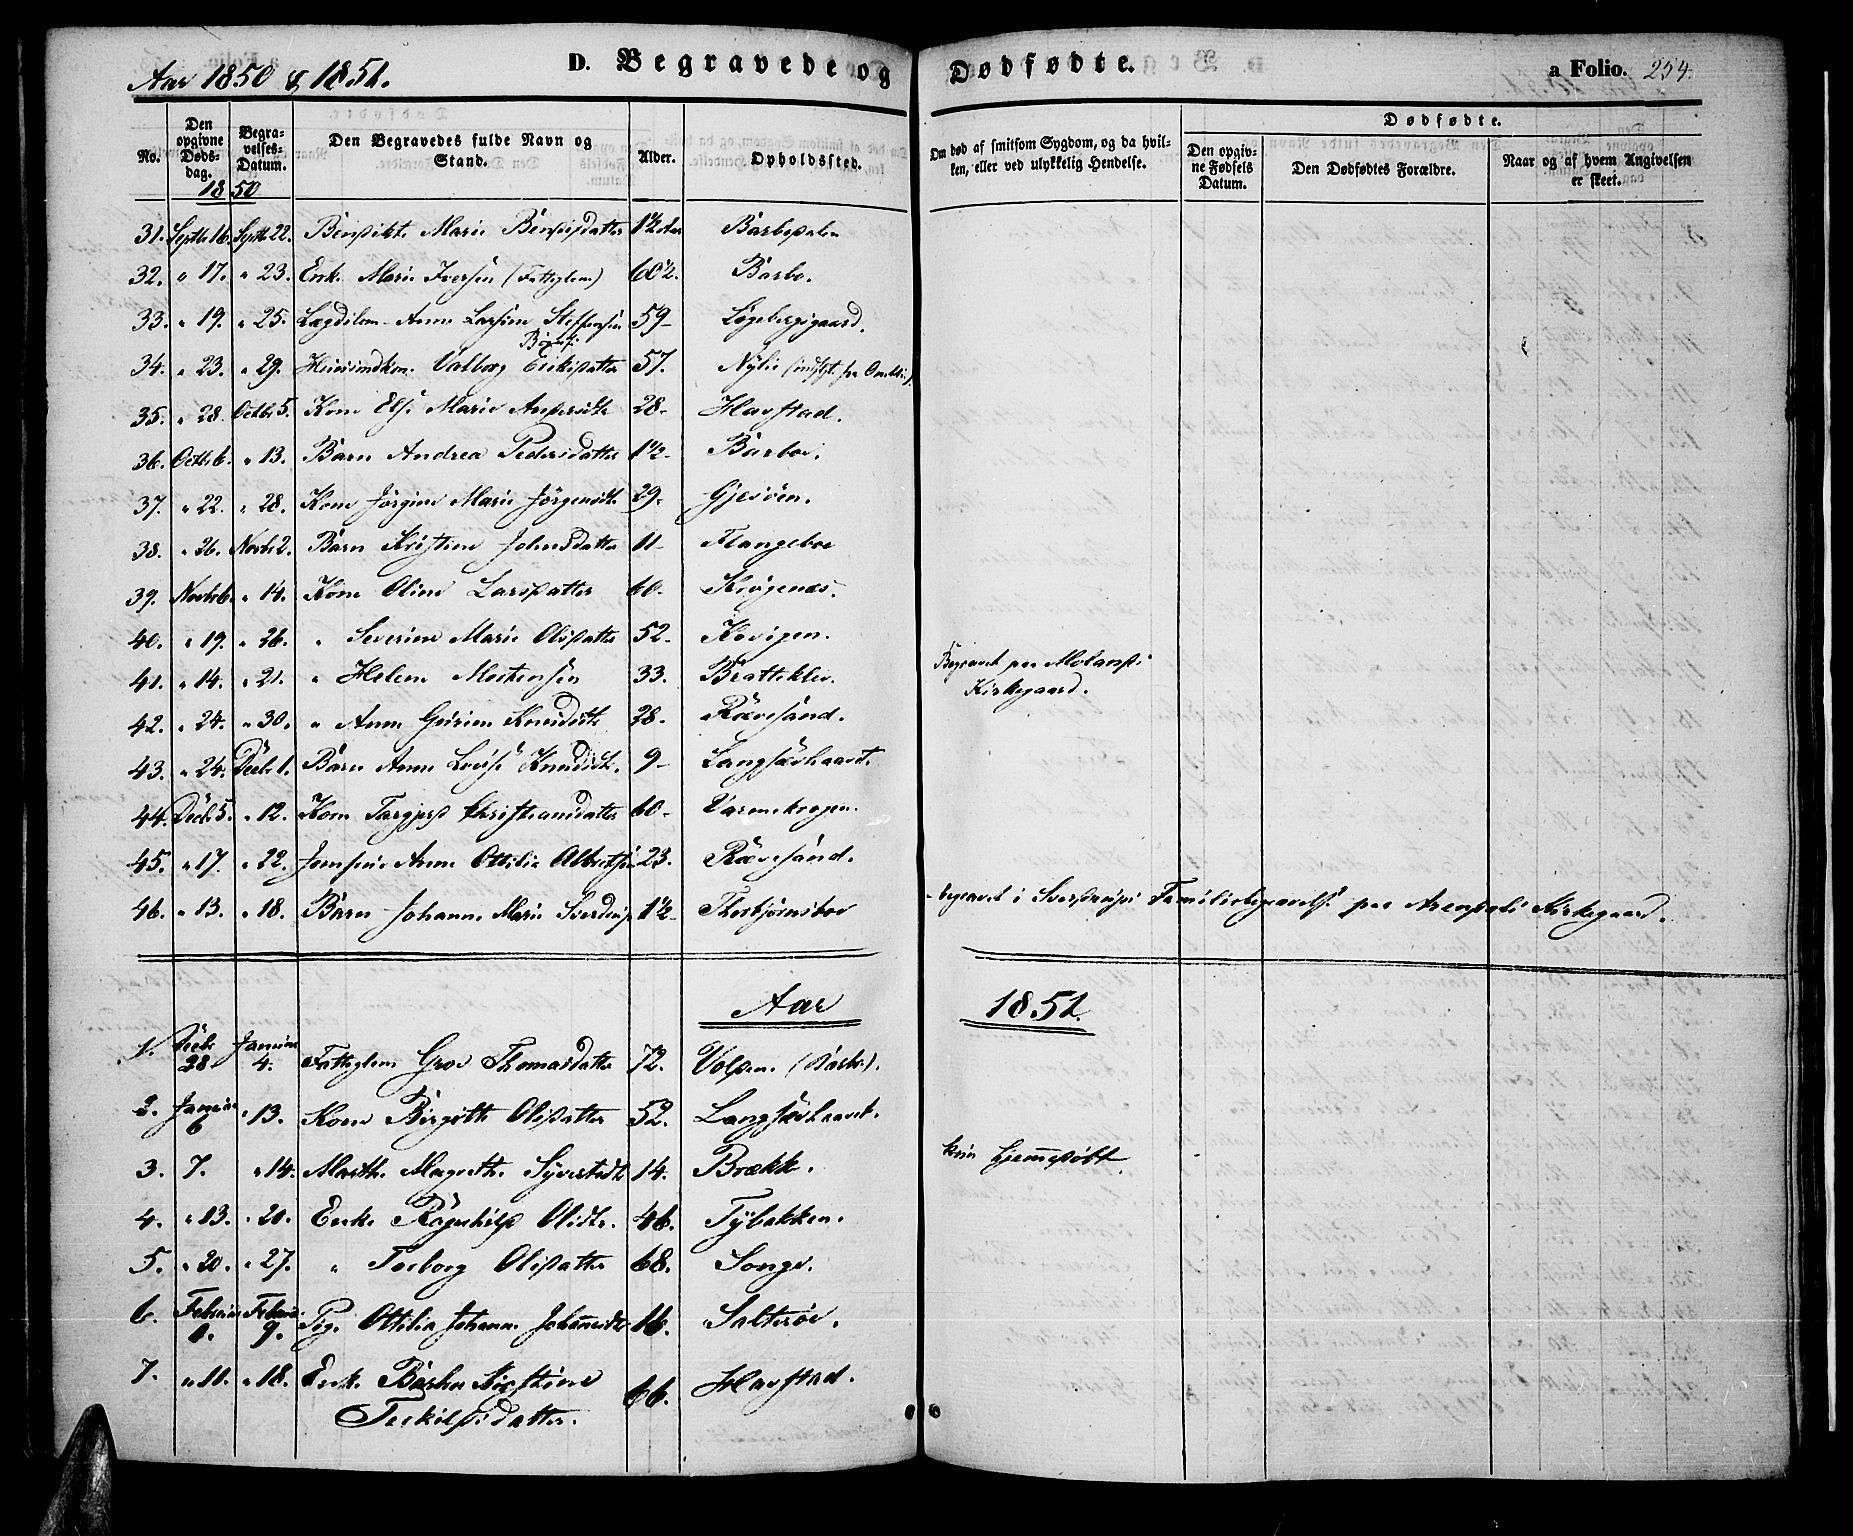 Aar 1850 & 1851. D. Begravede og Dødfødte. a Folio. 254.
No. Den opgivne Døds-dag. Begra-velses-Datum. Den Begravedes fulde Navn og Stand. Alder. Opholdssted. Om død af smitsom Sygdom, og da hvil-ken, eller ved ulykkelig Hendelse. Dødfødte.
Den opgiv-ne Fødsels Datum. Den Dødfødtes Forældre. Naar og af hvem Angivelsen er skeet.
1850
31. Septbr 16. Septbr 22. Marie 1½ Aar Barbodalen
32. " 17. " 23. Enke Marie Iversen (Fattiglem) 60½. Barbo.
33. " 19. " 25. Lægdslem Anne Larsine Steffensen 59 - Løgebergsgaard.
34. " 23. " 29. Valborg Eriksdatter 57. Nylie
35. " 28. Octbr 5. Kone Else Marie Andersdtr 28 - Havstad.
36. Octbr 6. " 13. Barn Andrea Pedersdatter 1½ - Barboe.
37. " 22. " 28. Kone Jørgine Marie Jørgensdtr 29 - Gjesøen.
38. " 26. Novbr 2. Barn Kristine Johnsdatter 11 - Flangeboe
39. Novbr 6. " 14. Kone Oline Larsdatter 60. Krøgenæs.
40. " 19. " 26. " Severine Marie Olsdatter 52. Kovigen.
41. " 14. " 21. " Helene Mortensen 33. Bratteklev. Begravet paa Molands
Kirkegaard.
42. " 24. " 30. " Anne Gurine Knudsdtr 28 - Rævesand.
43. " 24. Decbr 1. Barn Anne Lovise Knudsdtr. 9 - Langsævhaavet.
44. Decbr 5. " 12. Kone Targjerd Christiansdatter 60 - Varmekrogen.
45. " 17. " 22. Jomfrue Anne Ottilia Albretsen 23. Rævesand.
46. " 13. " 18. Barn Johanne Marie Sverdrup 1½ - Thorbjørnsboe begravet i Sverdrups Familiebegravelse paa Arendals Kirkegaard.
Aar 1851.
1. Decbr 28 Januar 4. Fattiglem Groe Thomasdatter 72. Volden (Barbo).
2. Januar 6 " 13. Kone Birgitte Olsdatter 52. Langsævhaavet.
3. 7. " 14. Marthe Magrethe Syverstdtr 14. Brække. kun hjemmedøbt.
4. " 13. " 20. Enke Ragnhild Olsdtr. 46. Tybakken.
5. " 20. " 27. " Torborg Olsdatter 68. Songe.
6. Februar 1. Februar 9. Pige Ottilia Johanne Johannesdtr 16. Salterøe.
7. " 11. " 18. Enke Kistine 66. Havstad.
Terkilsdatter.